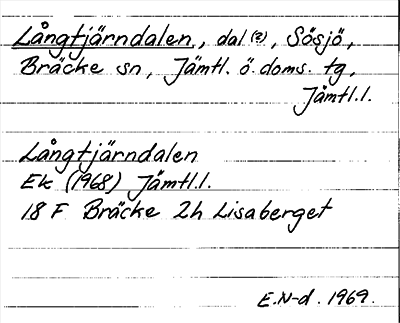 Långtjärndalen, dal (?), Sösjö,
Bräcke sn, Jämtl. ö. doms. tg,
Jämtl. l.
Långtjärndalen
Ek (1968) Jämtl. l.
18 F Bräcke 2h Lisaberget
E.N-d. 1969.